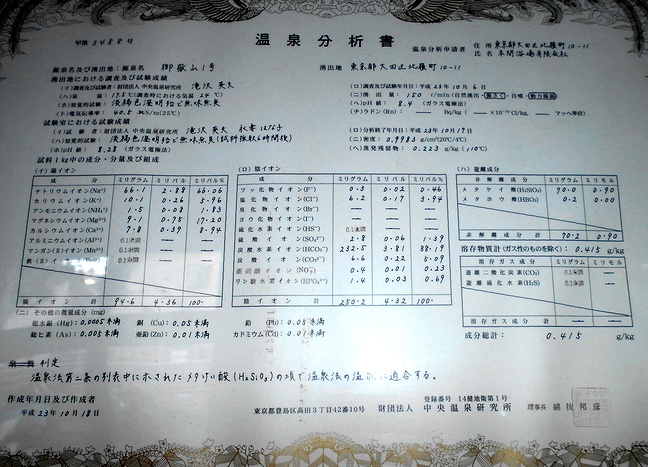 甲第3488号
温泉分析書
温泉分析申請者 住所 東京都大田区北雁町10-11
氏名 本間浴場有限会社
源泉名及び湧出地:源泉名 御嶽山1号 湧出地 東京都大田区北雁町10-11
湧出地における調査及び試験成績
(イ)調査及び試験者:財団法人 中央温泉研究所 滝沢英夫
(ロ)調査及び試験年月日:平成23年10月6日
(ハ)泉温 17.5℃(調査時における気温24℃)
(ニ)湧出量 150 ℓ/min(自然湧出・掘さく・自噴・動力揚湯)
(ホ)知覚的試験:淡褐色澄明殆ど無味無臭
(ヘ)pH値 8.4(ガラス電極法)
(ト)電気伝導率 40.5 mS/m(25℃)
(チ)ラドン(Rn) — Bq/kg( —×10⁻¹⁰Ci/kg, — マッヘ単位)
試験室における試験成績
(イ)試験者:財団法人中央温泉研究所 滝沢英夫
(ロ)分析終了年月日:平成23年10月17日
(ハ)知覚的試験:淡褐色澄明殆ど無味無臭(試料採取6時間後)
(ニ)密度 0.9983 g/cm³(20℃/4℃)
(ホ)pH値 8.28(ガラス電極法)
(ヘ)蒸発残留物 0.223 g/kg(110℃)
試料1kg中の成分・分量及び組成
(イ)陽イオン
成分 ミリグラム ミリバル ミリバル%
ナトリウムイオン(Na⁺) 66.1 2.88 66.06
カリウムイオン(K⁺) 10.1 0.26 5.96
アンモニウムイオン(NH₄⁺) 1.5 0.08 1.83
マグネシウムイオン(Mg²⁺) 9.1 0.75 17.20
カルシウムイオン(Ca²⁺) 7.8 0.39 8.94
アルミニウムイオン(Al³⁺) 0.1未満 — —
マンガン(Ⅱ)イオン(Mn²⁺) 0.1未満 — —
鉄(Ⅱ)イオン(Fe²⁺) 0.1未満 — —
陽イオン計 94.6 4.36 100.
(ロ)陰イオン
成分 ミリグラム ミリバル ミリバル%
フッ化物イオン(F⁻) 0.3 0.02 0.46
塩化物イオン(Cl⁻) 6.2 0.17 3.94
臭化物イオン(Br⁻) — — —
ヨウ化物イオン(I⁻) — — —
硫化水素イオン(HS⁻) — — —
硫酸イオン(SO₄²⁻) 2.8 0.06 1.39
炭酸水素イオン(HCO₃⁻) 232.5 3.81 88.19
炭酸イオン(CO₃²⁻) 6.6 0.22 5.09
亜硝酸イオン(NO₂⁻) 0.4 0.01 0.23
リン酸水素イオン(HPO₄²⁻) 1.4 0.03 0.69
陰イオン計 250.2 4.32 100.
(ハ)遊離成分
非解離成分 ミリグラム ミリモル
メタケイ酸(H₂SiO₃) 70.0 0.90
メタホウ酸(HBO₂) 0.2 0.00
非解離成分計 70.2 0.90
溶存物質計(ガス性のものを除く):0.415 g/kg
溶存ガス成分 ミリグラム ミリモル
遊離二酸化炭素(CO₂) 0.1未満 —
遊離硫化水素(H₂S) 0.1未満 —
溶存ガス成分計 — —
成分総計: 0.415 g/kg
(ニ)その他の微量成分(mg)
総水銀(Hg):0.0005未満 銅(Cu):0.05未満 鉛(Pb):0.05未満
総ヒ素(As):0.005未満 亜鉛(Zn):0.01未満 カドミウム(Cd):0.01未満
判定
温泉法第二条の別表中に示されたメタけい酸(H₂SiO₃)の項で温泉法の温泉に適合する。
作成年月日及び作成者
平成23年10月18日
登録番号 14健地衛第1号
東京都豊島区高田3丁目42番10号 財団法人 中央温泉研究所 理事長 綿抜邦彦